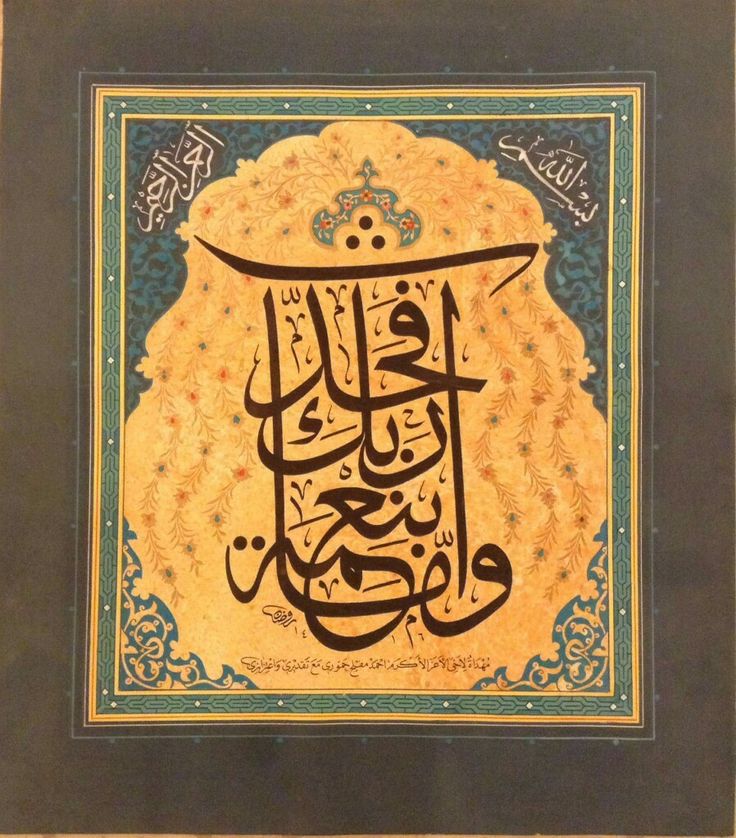 بسم الله
الرحمن الرحيم
وأما بنعمة ربك فحدث
روضان
مهداة لأخي الأعز الأكرم احمد مفلح حموري مع تقديري واعتزازي